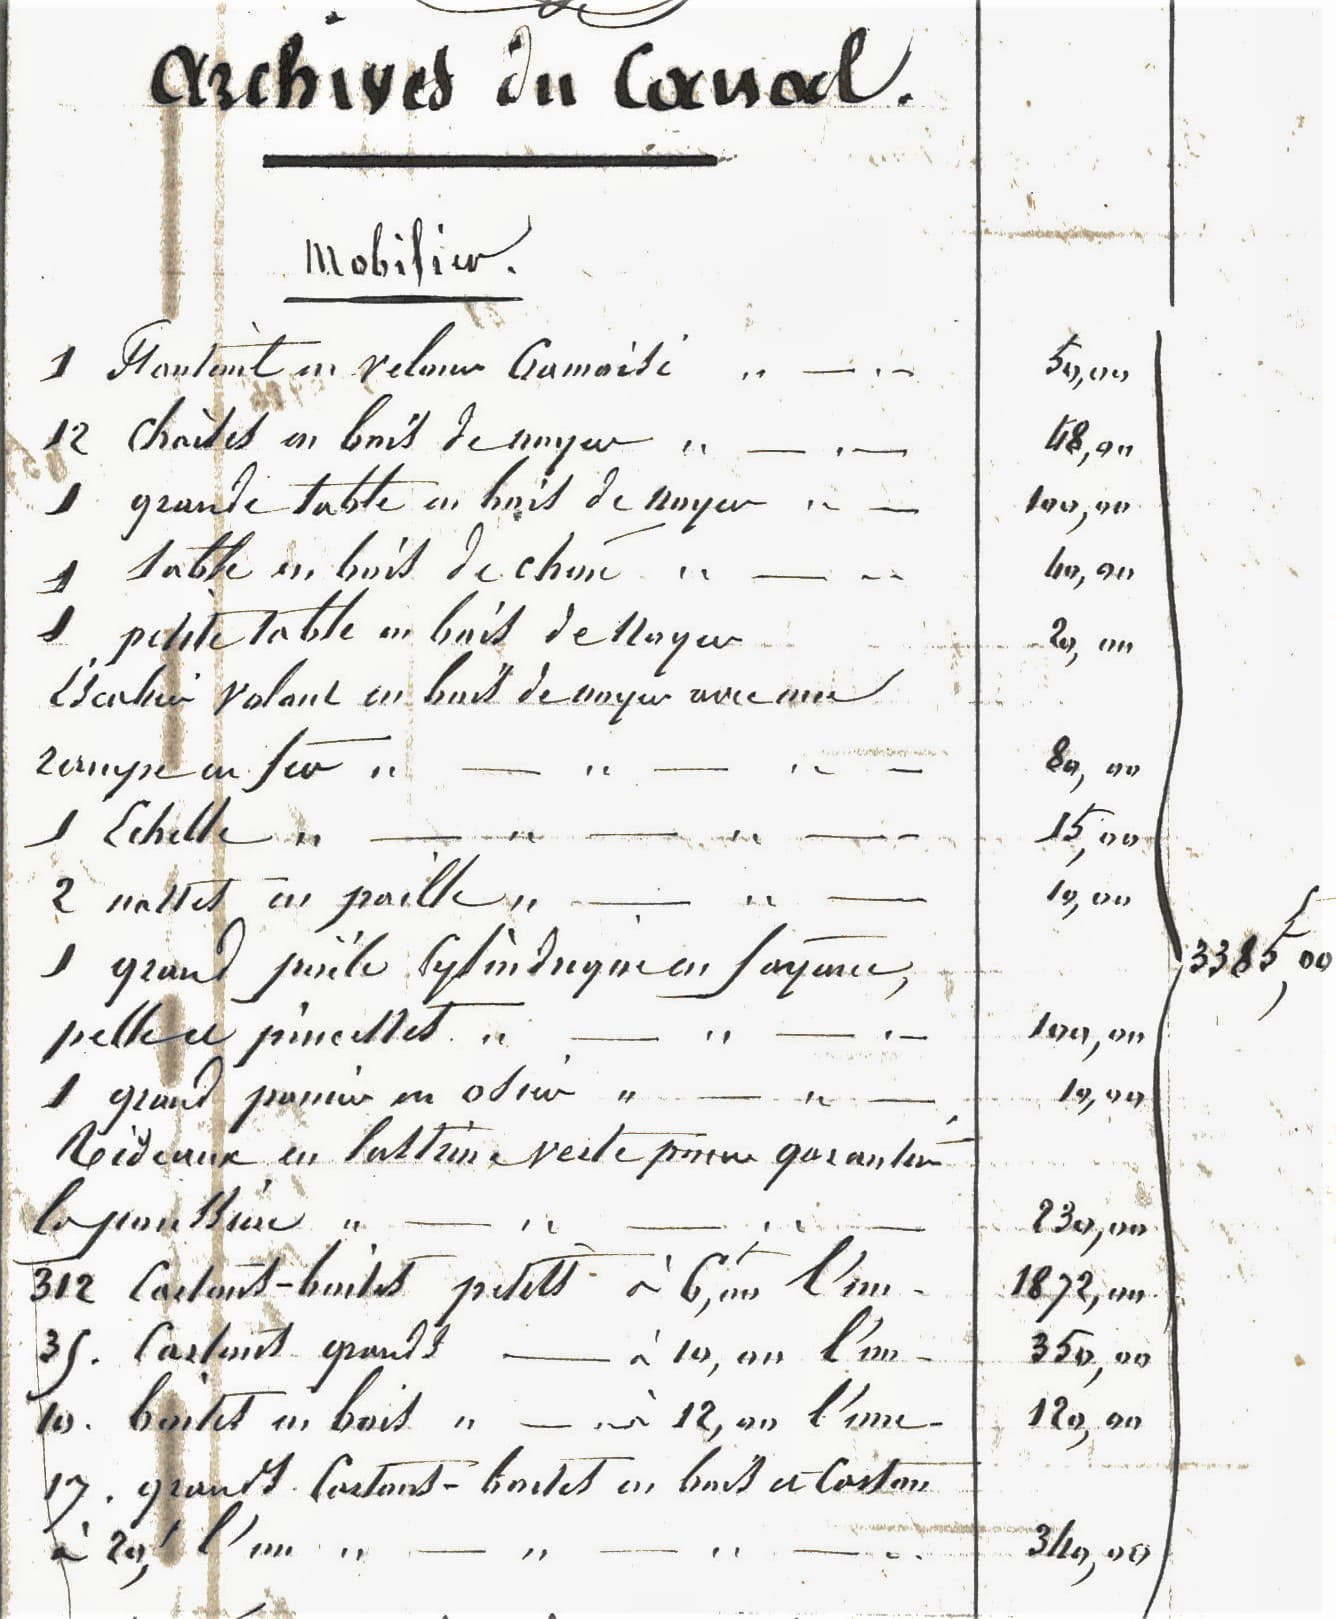 Archives du Canal.
Mobilier.
1 Fauteuil en velour Cramoisi " — " — 50,00
12 chaises en bois de noyer " — " — 48,00
1 grande table en bois de noyer " — 100,00
1 table en bois de chêne " — " 40,00
1 petite table en bois de noyer 20,00
Escalier volant en bois de noyer avec une
rampe en fer " — " — " — 80,00
1 Echelle " — " — " — 15,00
2 nattes en paille " — " — 10,00
1 grand poële Cylindrique en fayence, 3385,00
pelle et pincettes " — " — " — 100,00
1 grand panier en osier " — " — 10,00
Rideaux en lustrine verte pour garantir
la poussière " — " — " — 230,00
312 Cartons-boites petits à 6,00 l'un - 1872,00
35. Cartons grands — à 10,00 l'un - 350,00
10. boites en bois " — " à 12,00 l'une - 120,00
17. grands Cartons-boites en bois et Carton
à 20,f l'un " — " — " — " 340,00